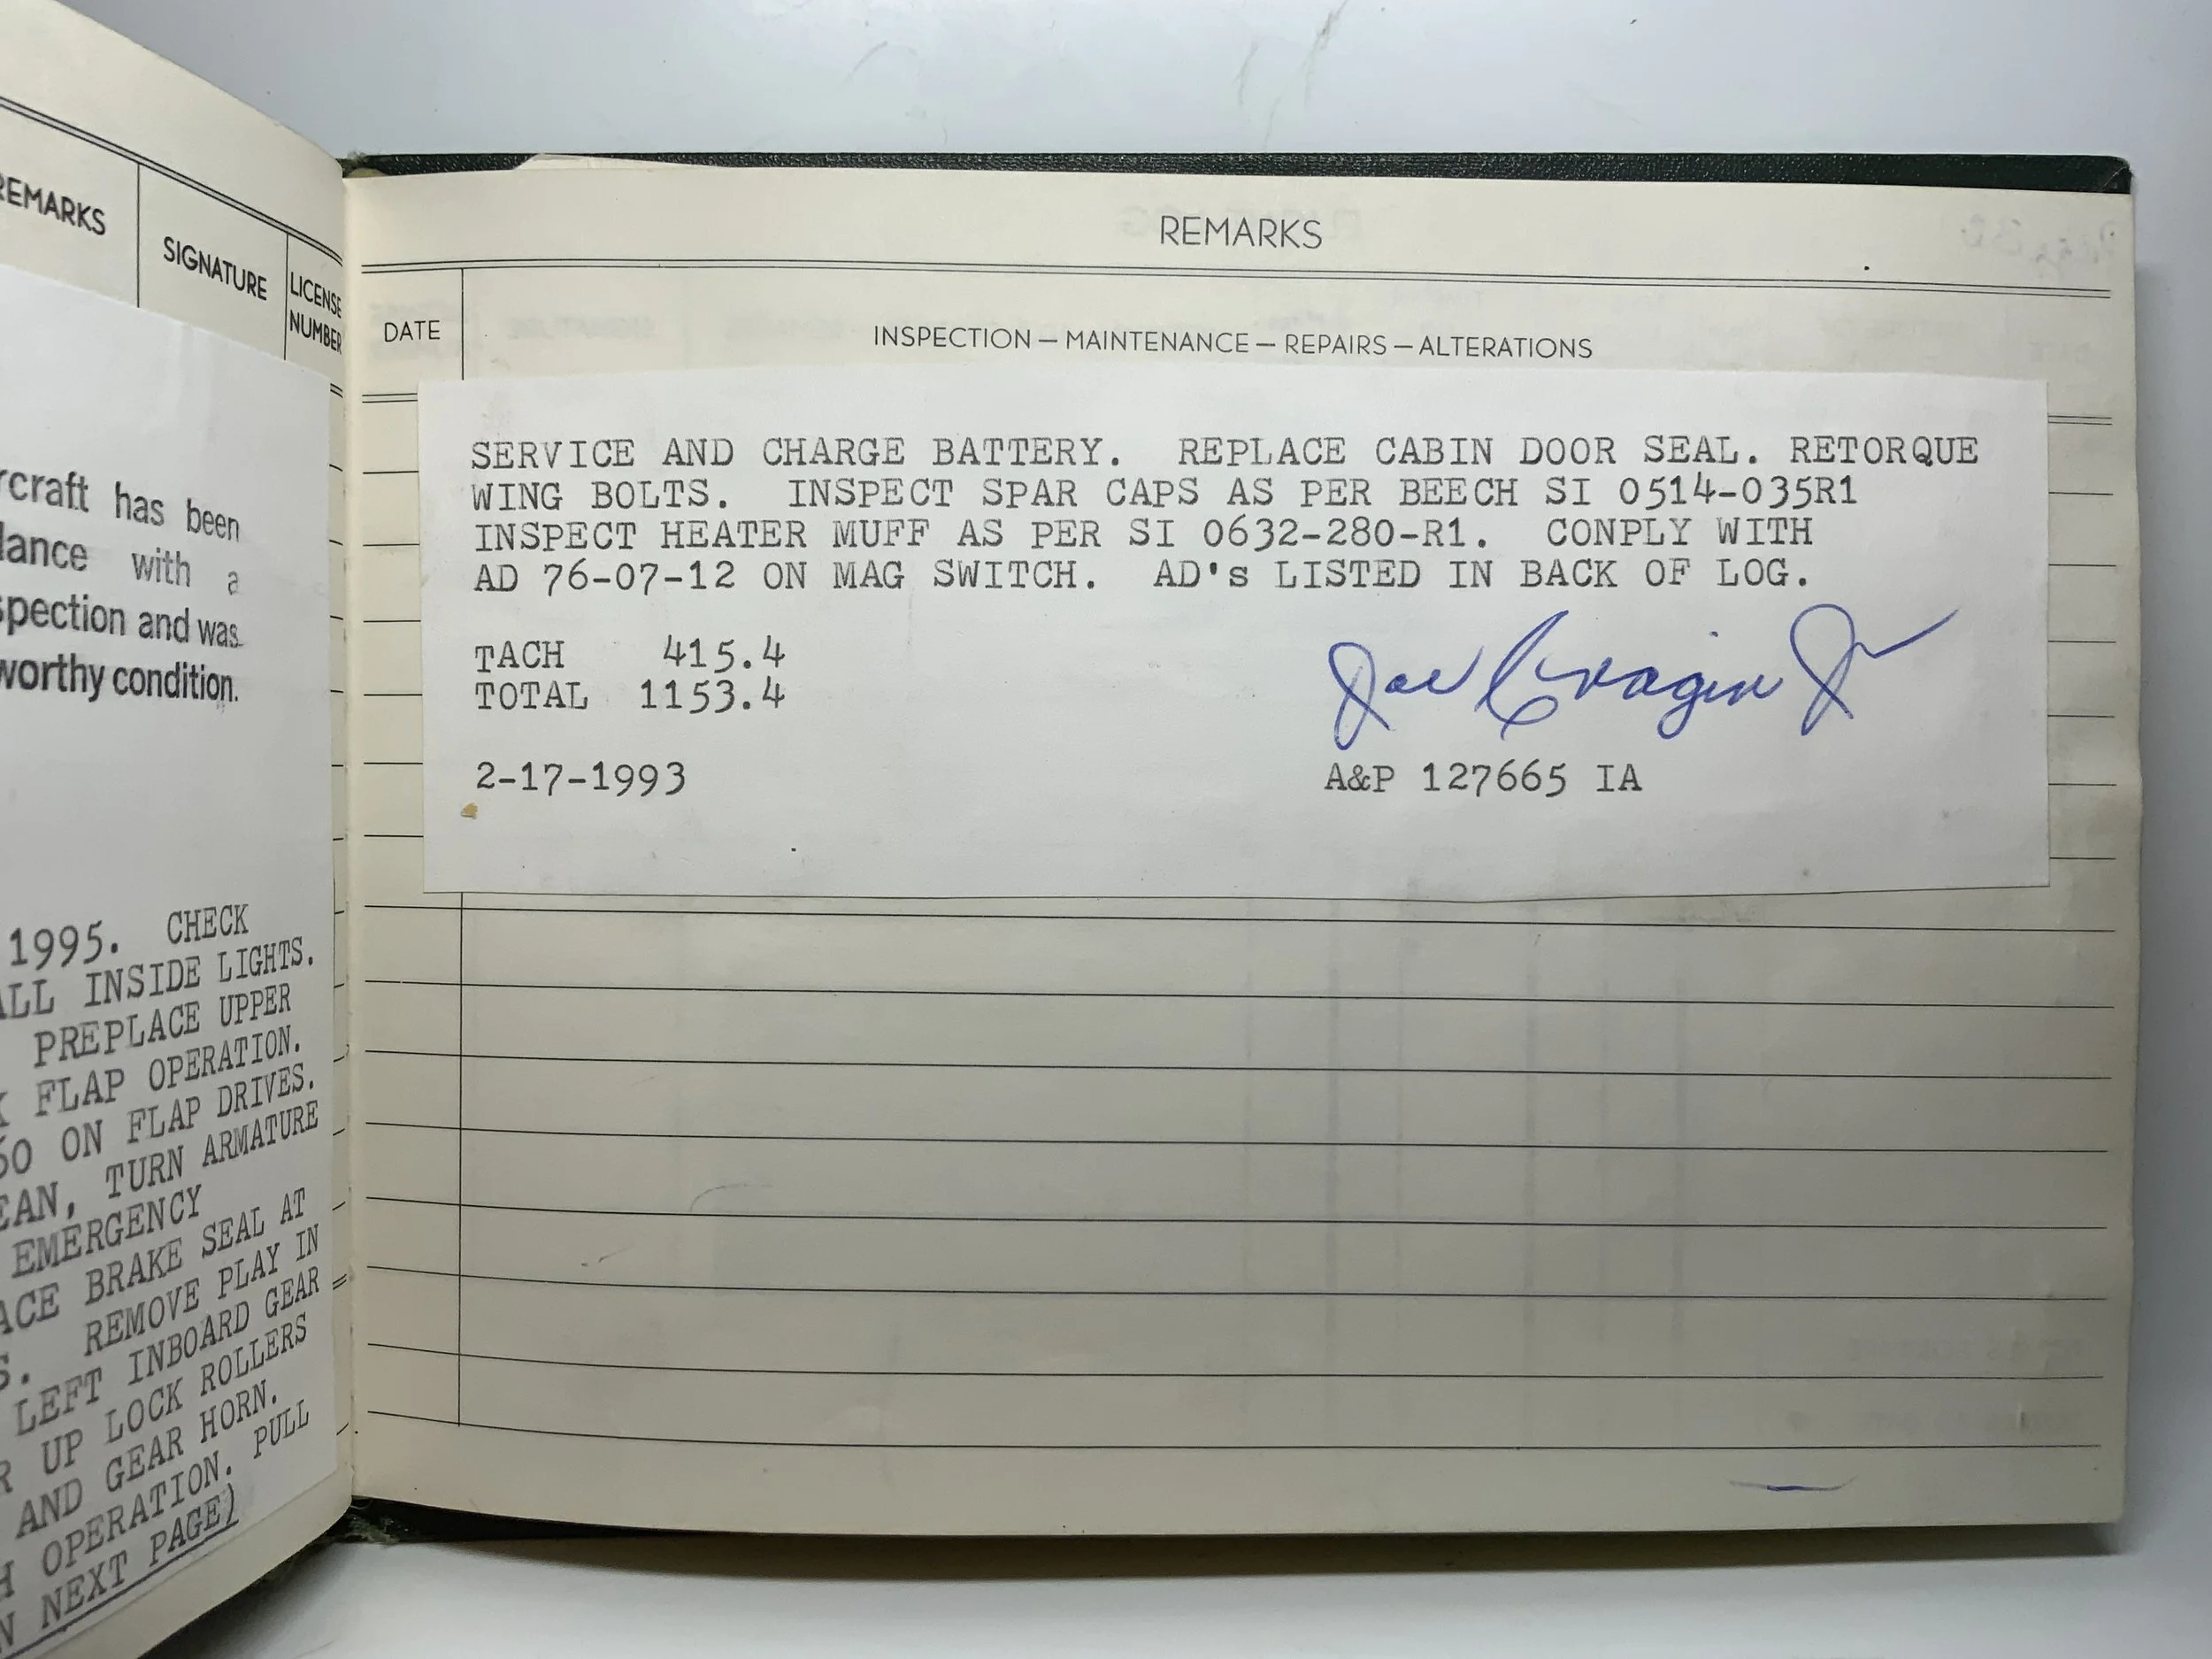 REMARKS
SIGNATURE
LICENSE
NUMBER
has been
with a
and was
condition.
1995. CHECK
INSIDE LIGHTS.
PREPLACE UPPER
FLAP OPERATION.
ON FLAP DRIVES.
TURN ARMATURE
EMERGENCY
BRAKE SEAL AT
REMOVE PLAY IN
LEFT INBOARD GEAR
UP LOCK ROLLERS
AND GEAR HORN.
OPERATION. PULL
NEXT PAGE)
REMARKS
DATE
INSPECTION — MAINTENANCE — REPAIRS — ALTERATIONS
SERVICE AND CHARGE BATTERY. REPLACE CABIN DOOR SEAL. RETORQUE
WING BOLTS. INSPECT SPAR CAPS AS PER BEECH SI 0514-035R1
INSPECT HEATER MUFF AS PER SI 0632-280-R1. CONPLY WITH
AD 76-07-12 ON MAG SWITCH. AD's LISTED IN BACK OF LOG.
TACH 415.4
TOTAL 1153.4
Joe Cragin Jr
2-17-1993
A&P 127665 IA